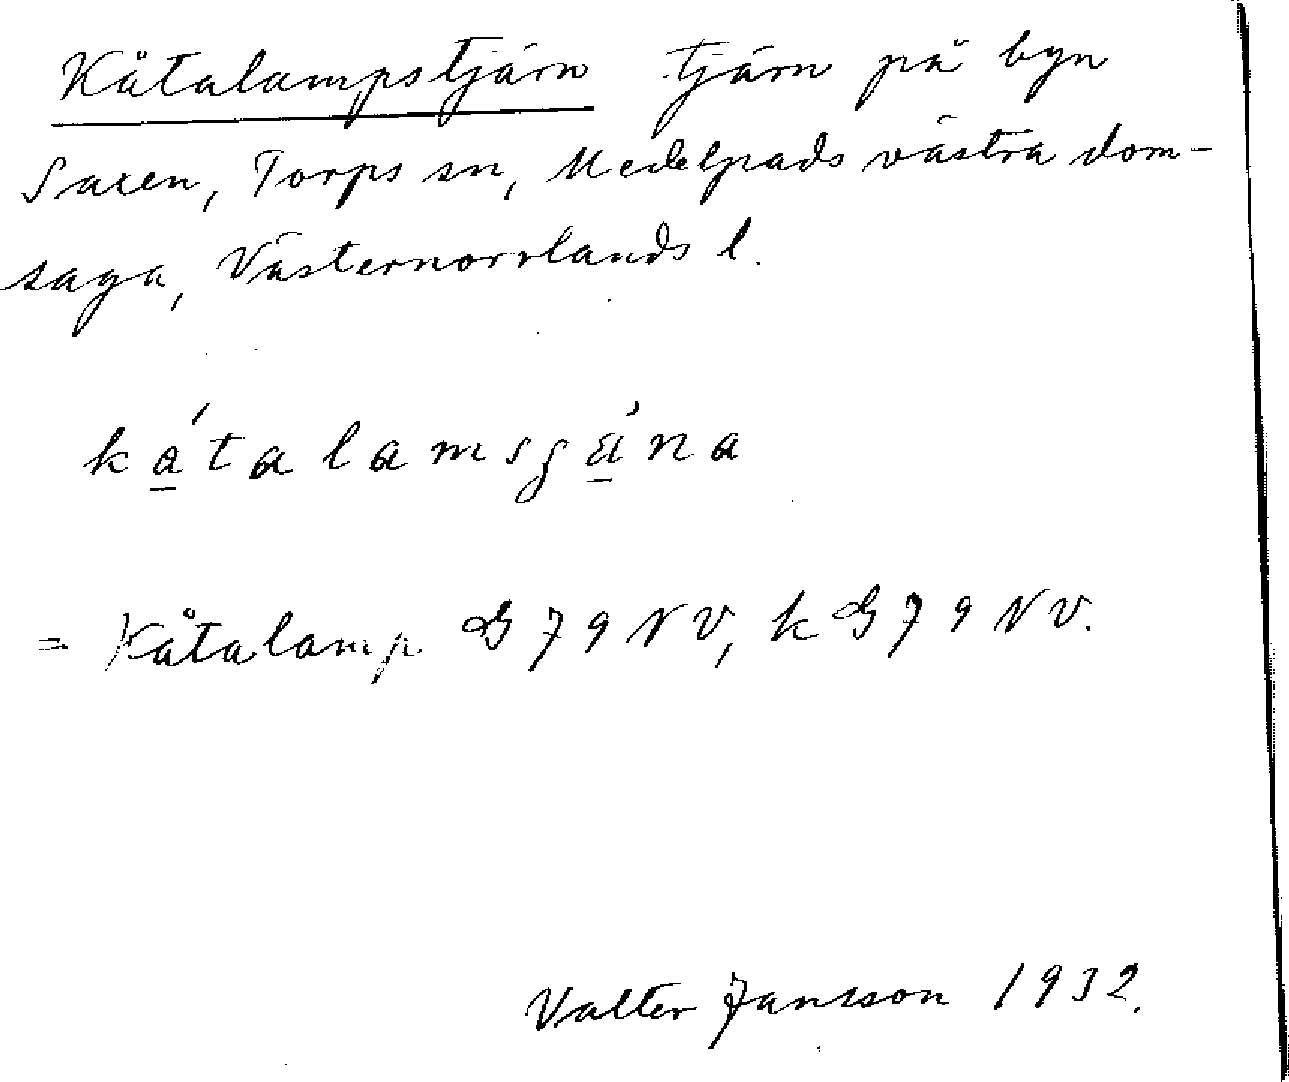 Kåtalampstjärn tjärn på byn
Saxen, Torps sn, Medelpads västra dom-
saga, Västernorrlands l.
= Kåtalamp G 79 NV, k G 79 NV.
Valter Jansson 1932.